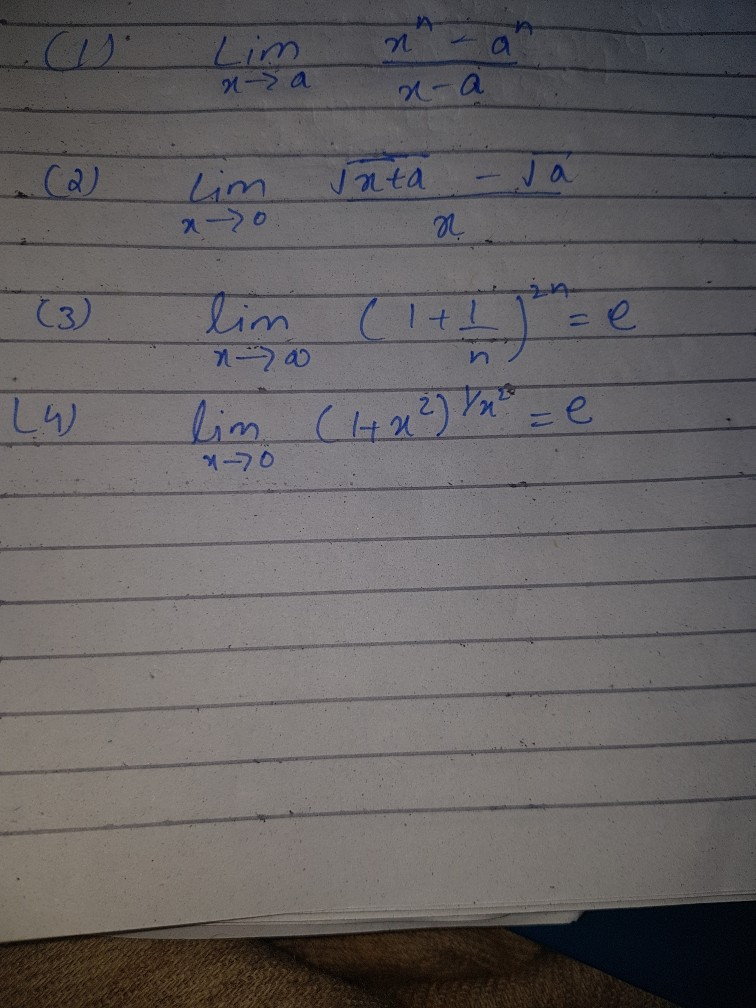 (1) Lim x→a xⁿ - aⁿ / x - a
(2) Lim x→0 √x+a - √a / x
(3) lim x→∞ (1 + 1/n)²ⁿ = e
(4) lim x→0 (1+x²)^1/x² = e